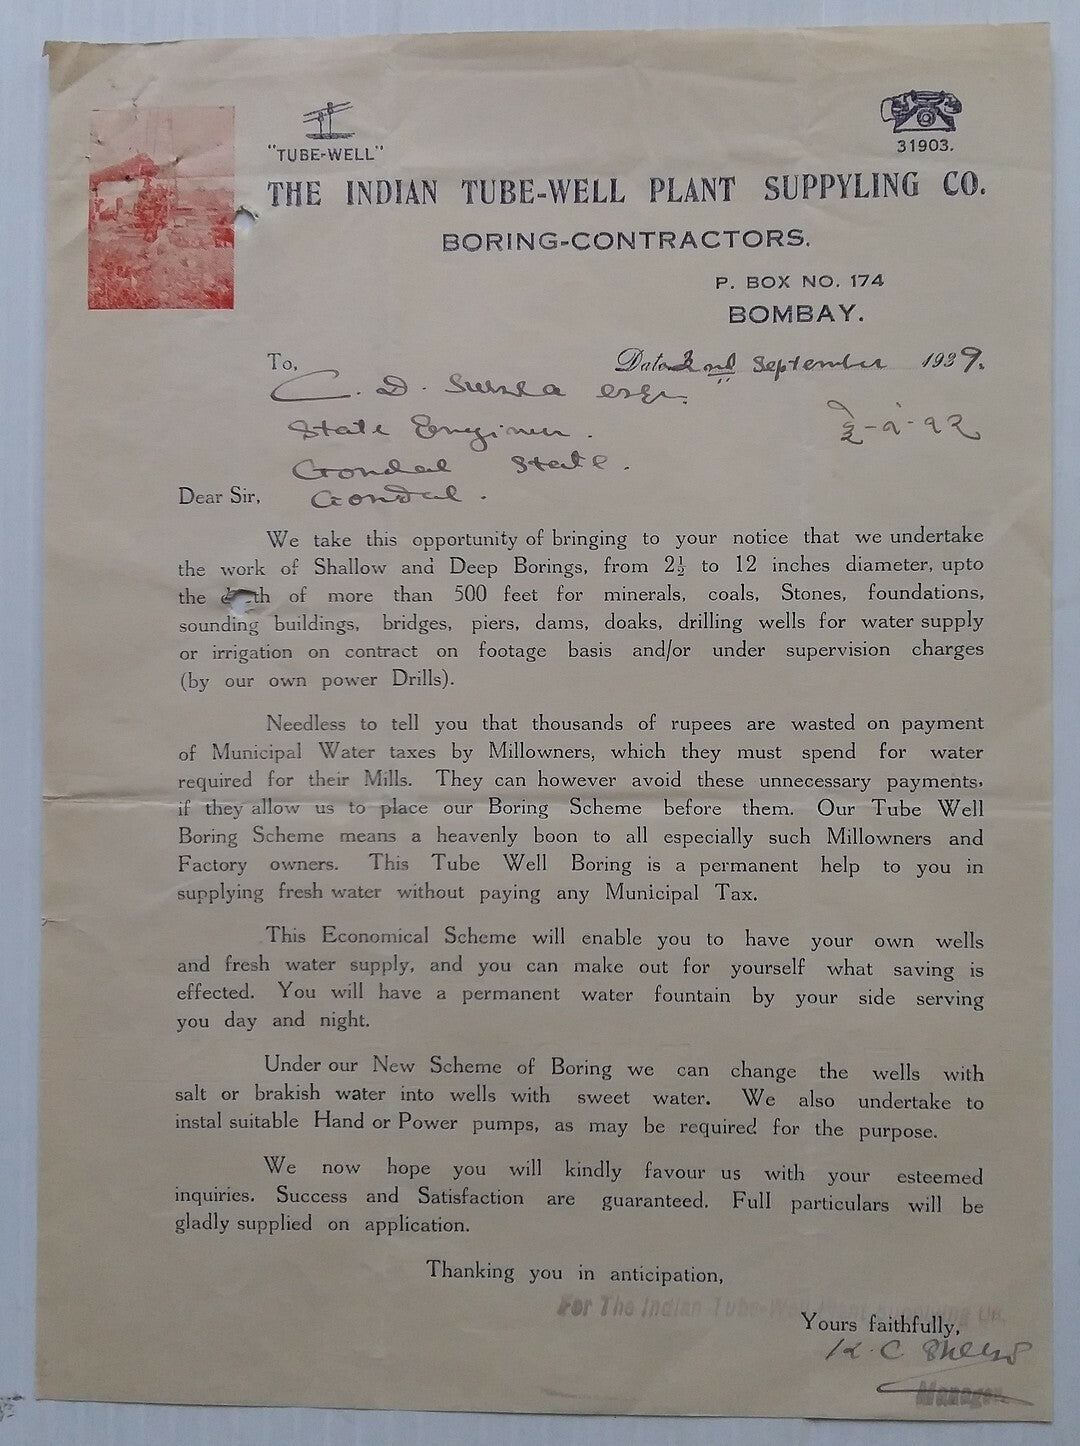 "TUBE-WELL"
31903.
THE INDIAN TUBE-WELL PLANT SUPPYLING CO.
BORING-CONTRACTORS.
P. BOX NO. 174
BOMBAY.
To,
Date 2nd September 1939.
C. D. esqr.
State Engineer.
Gondal State.
Dear Sir,
Gondal.
We take this opportunity of bringing to your notice that we undertake
the work of Shallow and Deep Borings, from 2½ to 12 inches diameter, upto
the of more than 500 feet for minerals, coals, Stones, foundations,
sounding buildings, bridges, piers, dams, doaks, drilling wells for water supply
or irrigation on contract on footage basis and/or under supervision charges
(by our own power Drills).
Needless to tell you that thousands of rupees are wasted on payment
of Municipal Water taxes by Millowners, which they must spend for water
required for their Mills. They can however avoid these unnecessary payments,
if they allow us to place our Boring Scheme before them. Our Tube Well
Boring Scheme means a heavenly boon to all especially such Millowners and
Factory owners. This Tube Well Boring is a permanent help to you in
supplying fresh water without paying any Municipal Tax.
This Economical Scheme will enable you to have your own wells
and fresh water supply, and you can make out for yourself what saving is
effected. You will have a permanent water fountain by your side serving
you day and night.
Under our New Scheme of Boring we can change the wells with
salt or brakish water into wells with sweet water. We also undertake to
instal suitable Hand or Power pumps, as may be required for the purpose.
We now hope you will kindly favour us with your esteemed
inquiries. Success and Satisfaction are guaranteed. Full particulars will be
gladly supplied on application.
Thanking you in anticipation,
For The Indian Tube-Well Plant Supplying Co.
Yours faithfully,
K. C.
Manager.